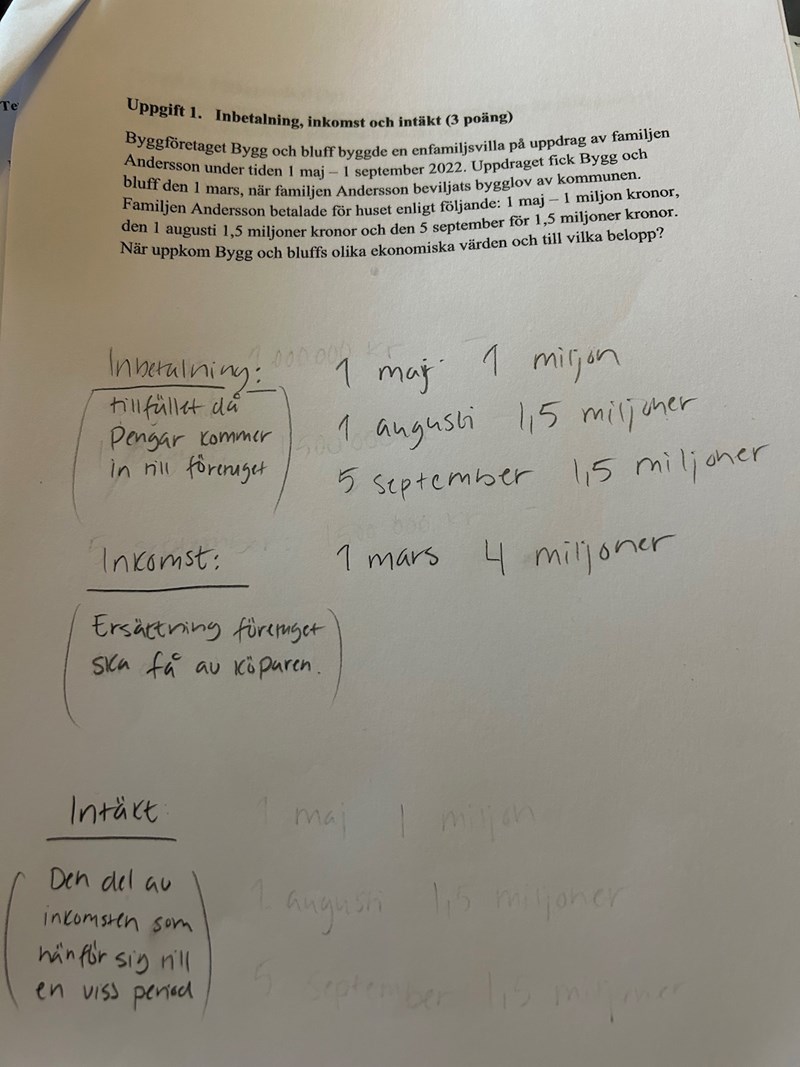 Te
Uppgift 1. Inbetalning, inkomst och intäkt (3 poäng)
Byggföretaget Bygg och bluff byggde en enfamiljsvilla på uppdrag av familjen
Andersson under tiden 1 maj – 1 september 2022. Uppdraget fick Bygg och
bluff den 1 mars, när familjen Andersson beviljats bygglov av kommunen.
Familjen Andersson betalade för huset enligt följande: 1 maj – 1 miljon kronor,
den 1 augusti 1,5 miljoner kronor och den 5 september för 1,5 miljoner kronor.
När uppkom Bygg och bluffs olika ekonomiska värden och till vilka belopp?
Inbetalning: 1 maj 1 miljon
tillfället då
pengar kommer
in till företaget
1 augusti 1,5 miljoner
5 september 1,5 miljoner
Inkomst: 1 mars 4 miljoner
Ersättning företaget
ska få av köparen.
Intäkt 1 maj 1 miljon
Den del av
inkomsten som
hänför sig till
en viss period
1 augusti 1,5 miljoner
5 september 1,5 miljoner